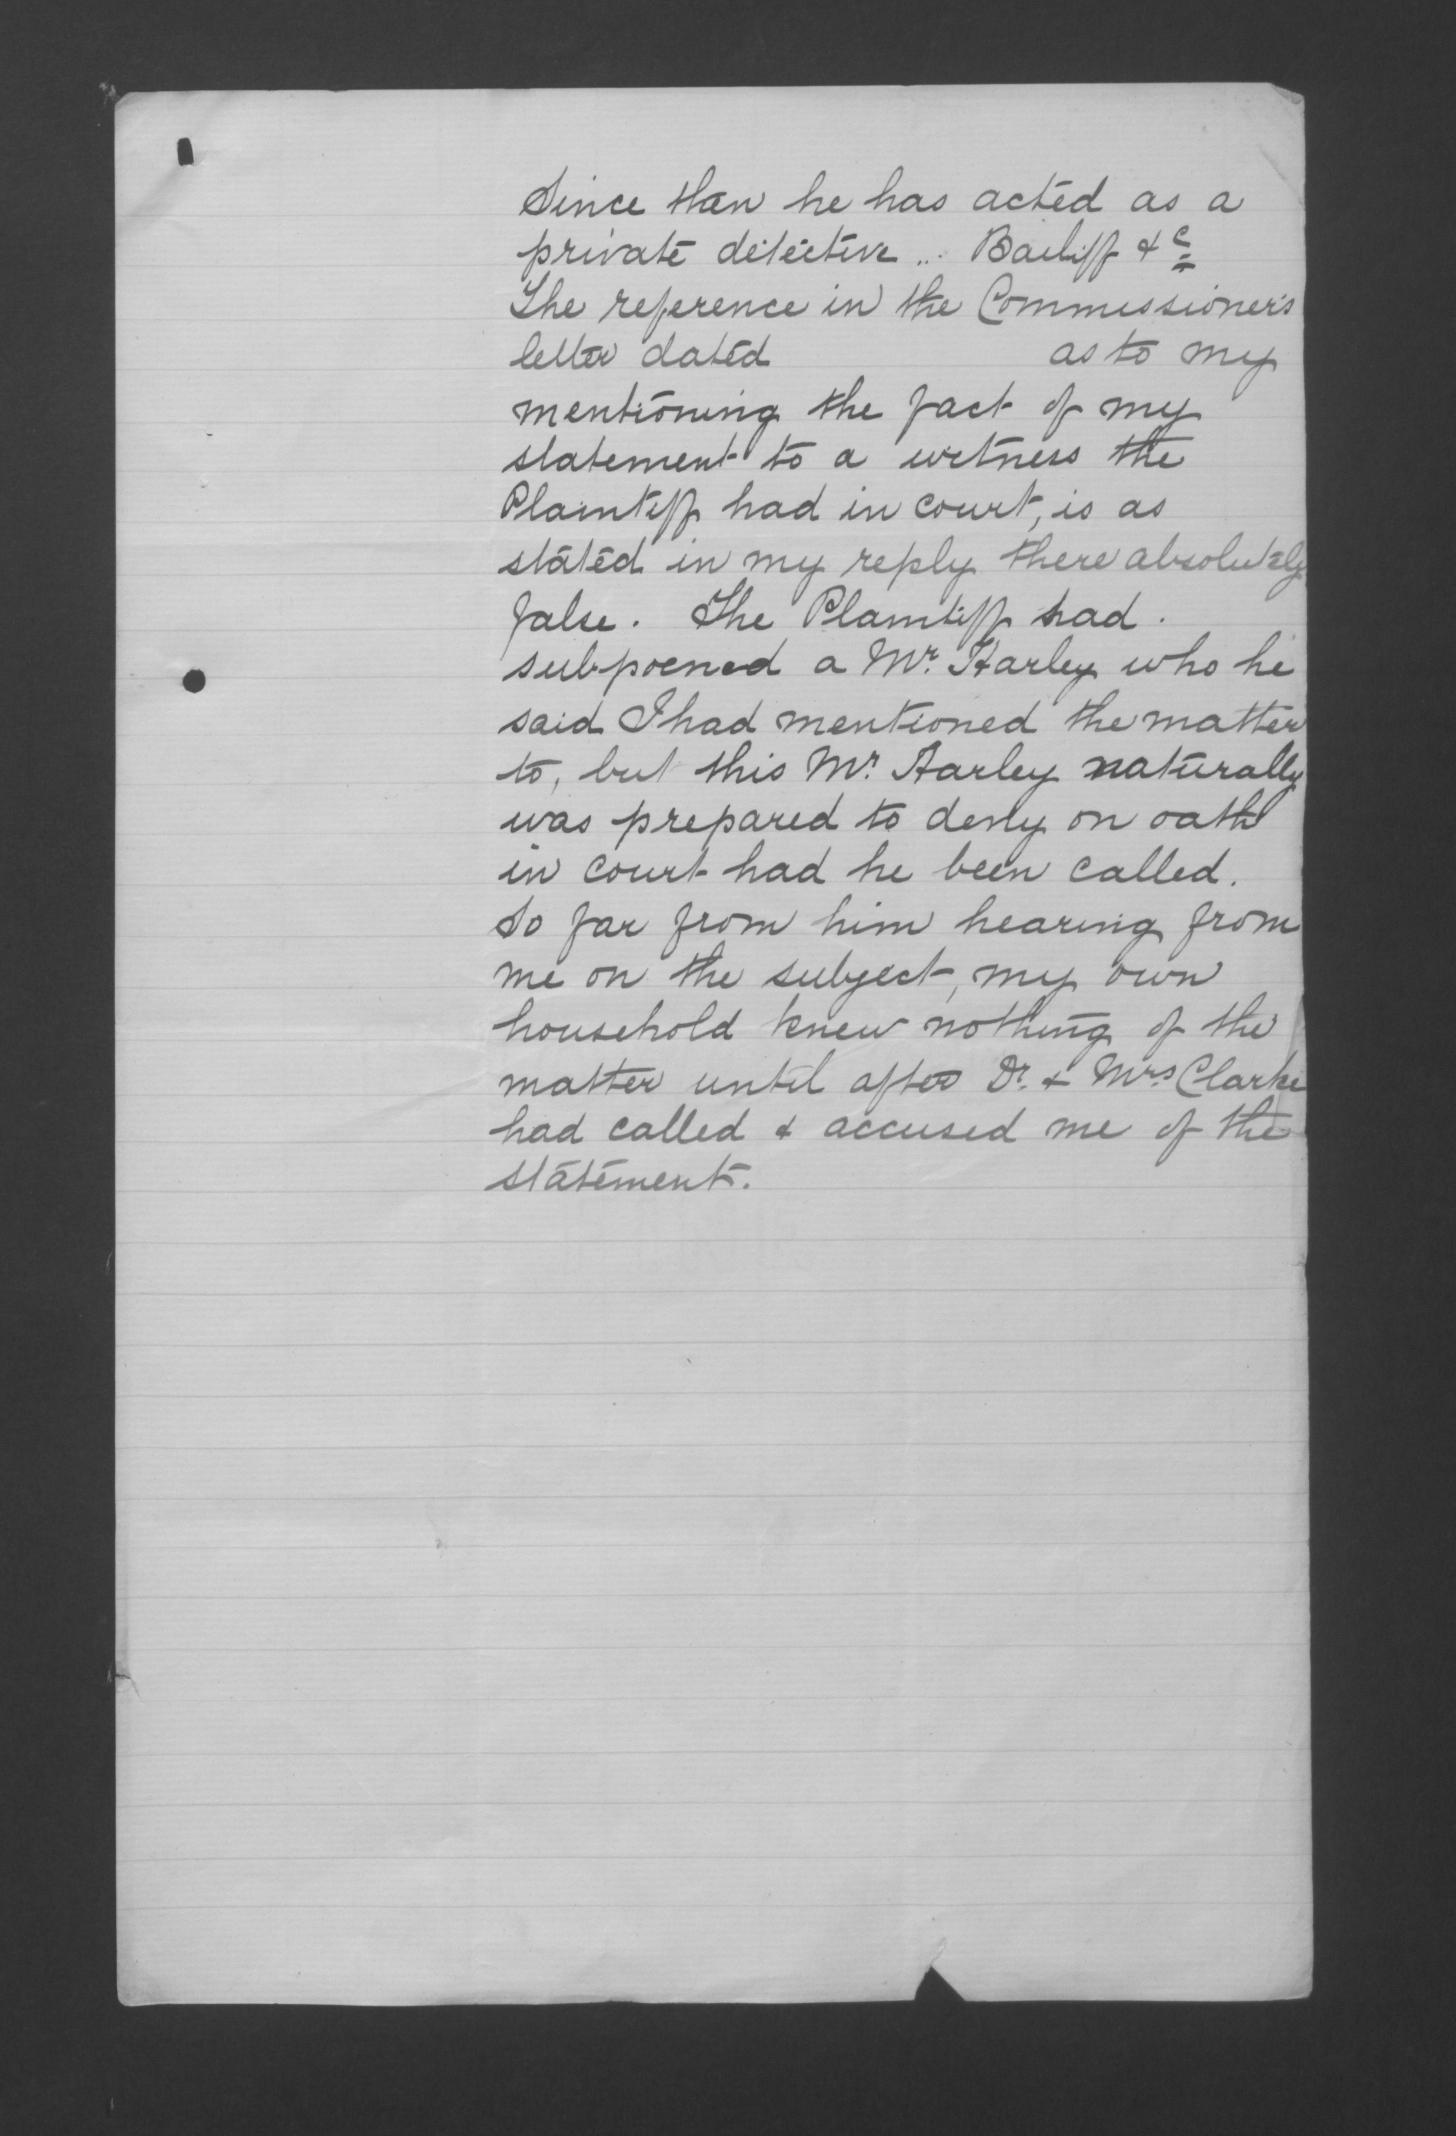 Since then he has acted as a
private detective ... Bailiff &c
The reference in the Commissioner's
letter dated as to my
mentioning the fact of my
statement to a witness the
Plaintiff had in court, is as
stated in my reply there absolutely
false. The Plaintiff had.
subpoened a Mr. Harley who he
said I had mentioned the matter
to, but this Mr. Harley naturally
was prepared to deny on oath
in court had he been called.
So far from him hearing from
me on the subject, my own
household knew nothing of the
matter until after Dr. & Mrs Clarke
had called & accused me of the
statement.